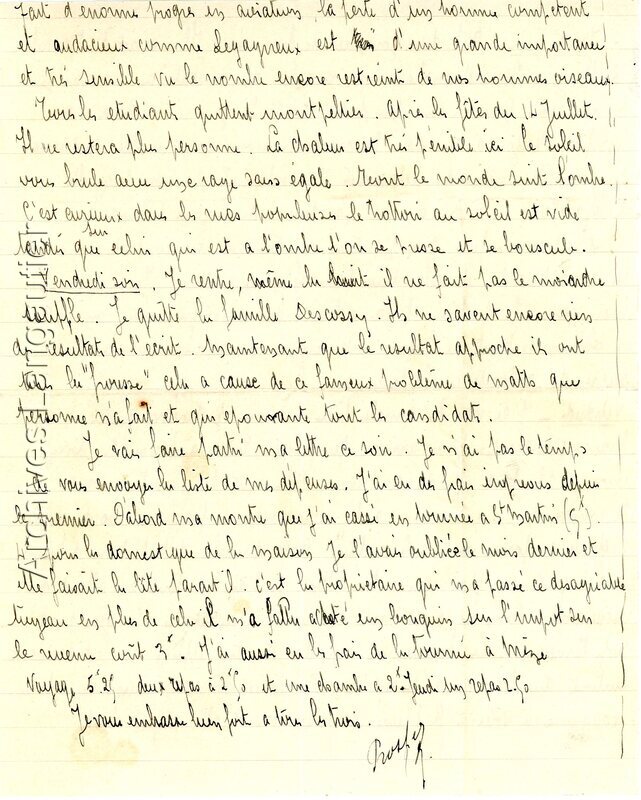 fait d'enorme progres en aviation, la perte d'un homme compétent
et audacieux comme Legagneux est d'une grande importance
et très sensible vu le nombre encore restreint de nos hommes oiseaux.
Tous les etudiants quittent montpellier. Après les fêtes du 14 Juillet.
Il ne restera plus personne. La chaleur est très pénible ici le soleil
vous brule avec une rage sans égale. tout le monde suit l'ombre.
C'est curieux dans les rues populeuses le trottoir au soleil est vide
tandis que sur celui qui est a l'ombre l'on se presse et se bouscule.
Vendredi soir. Je rentre, même la nuit il ne fait pas le moindre
souffle. Je quitte la famille Descossy. Ils ne savent encore rien
du résultats de l'écrit. Maintenant que le résultat approche ils ont
tous la "frousse" cela a cause de ce fameux problème de maths que
personne n'a fait et qui epouvante tout les candidats.
Je vais faire parti ma lettre ce soir. Je n'ai pas le temps
de vous envoyer la liste de mes dépenses. J'ai eu des frais imprevus depuis
le premier. D'abord ma montre que j'ai cassé en tournée a St Martin (5f).
pour la domestique de la maison Je l'avais oubliée le mois dernier et
elle faisait la tête parait il. c'est la propriétaire qui m'a passé ce desagréable
tuyeau en plus de cela il m'a fallu acheté un bouquin sur l'impot sur
le revenu coût 3f. J'ai aussi eu les frais de la tournée à Mèze
Voyage 5f25 deux repas à 2f50 et une chambre a 2f. Jeudi un repas 2.50
Je vous embrasse bien fort a tous les trois.
Prosper
Archives-Singulier